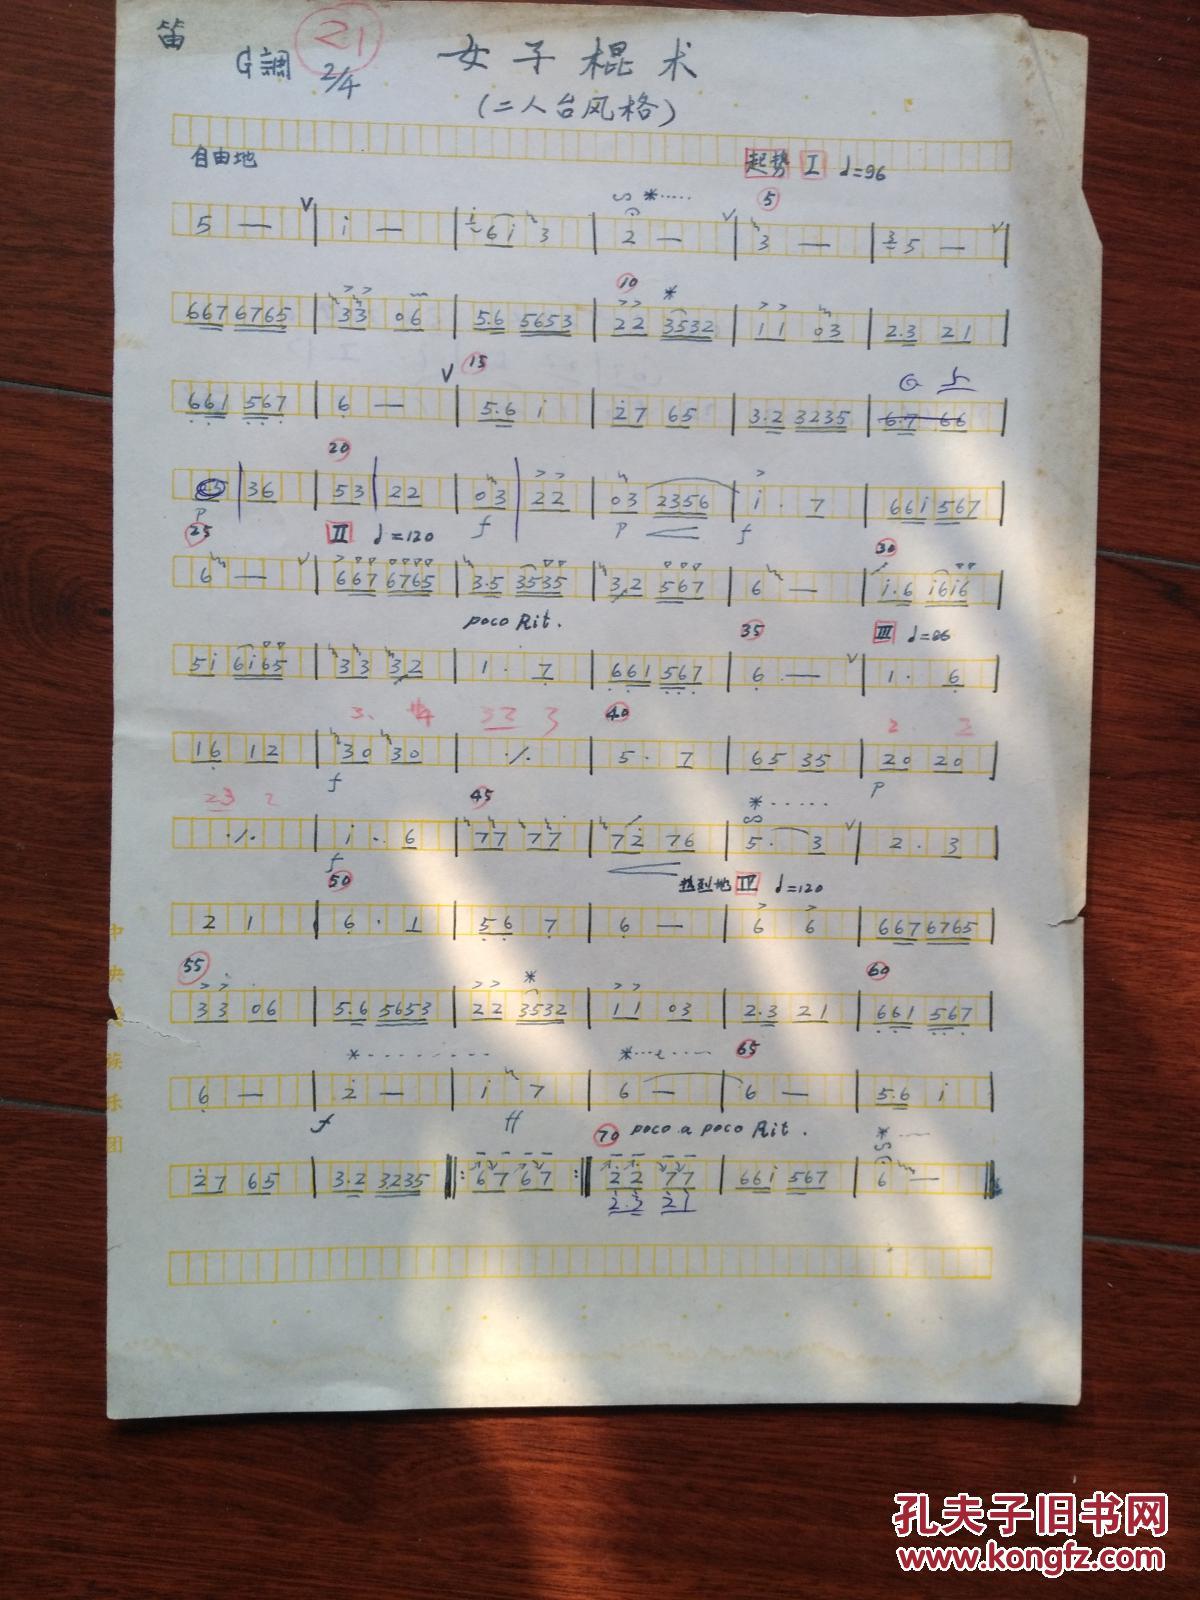 笛
G調 2/4 21 女子棍术
(二人台风格)
自由地 起势 I d=96
5
5 — V | i — | 6i 3 | 2 — V | 3 — | 5 — V |
10 *
667 6765 | 33 06 | 5.6 5653 | 22 3532 | 11 03 | 2.3 21 |
V 15
661 567 | 6 — | 5.6 i | 27 65 | 3.2 3235 | 6.7 66 |
20
36 | 53 | 22 | 03 | 22 | 03 2356 | i . 7 | 66i 567 |
p f p f
25 II d=120 30
6 — V | 667 6765 | 3.5 3535 | 32 567 | 6 — | i.6 i6i6 |
poco Rit. 35 III d=86
5i 6i65 | 33 32 | 1 . 7 | 661 567 | 6 — V | 1 . 6 |
3. 4 32 3 40 2 . 2
16 12 | 30 30 | ·/· | 5 . 7 | 65 35 | 20 20 |
f p
23 2 45 *
·/· | i . 6 | 77 77 | 72 76 | 5 . 3 V | 2 . 3 |
f
50 热烈地 IV d=120
2 1 | 6 . 1 | 56 7 | 6 — | 6 6 | 667 6765 |
55 * 60
33 06 | 5.6 5653 | 22 3532 | 11 03 | 2.3 21 | 661 567 |
* * 65
6 — | 2 — | i 7 | 6 — | 6 — | 5.6 i |
f ff 70 poco a poco Rit. *
27 65 | 3.2 3235 ‖: 67 67 :‖ 22 77 | 66i 567 | 6 — ‖
2.3 21
中央民族乐团
孔夫子旧书网
www.kongfz.com